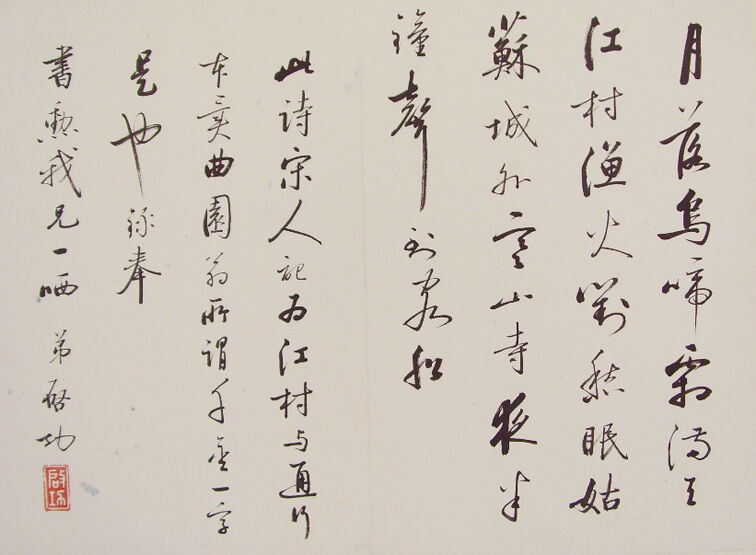 月落烏啼霜满天
江村漁火對愁眠姑
蘇城外寒山寺夜半
鐘聲到客船
此诗宋人記为江村与通行
本異曲園翁所谓千金一字
是也録奉
書勲我兄一哂 弟啓功
啟功